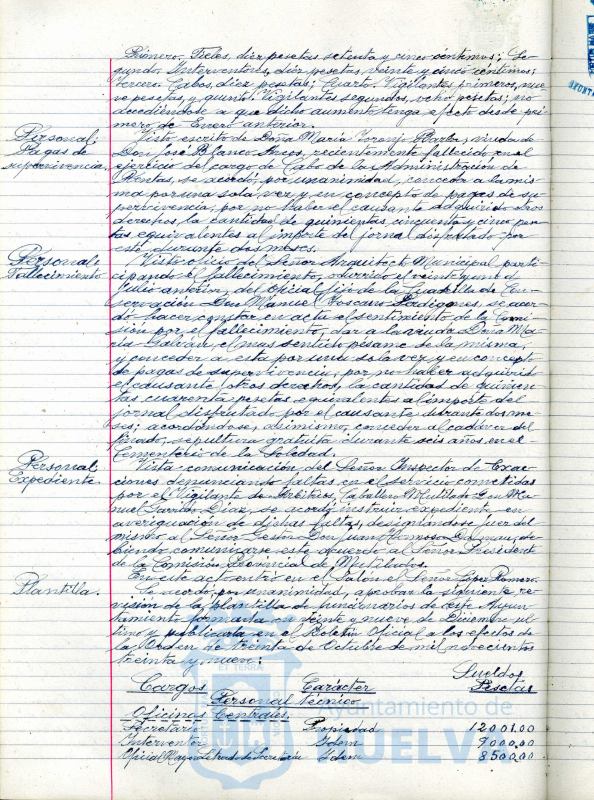 Primero. Fieles, diez pesetas setenta y cinco céntimos; Se-
gundo. Interventores, diez pesetas, veinte y cinco céntimos;
Tercero. Cabos, diez pesetas; Cuarto. Vigilantes primeros, nue-
ve pesetas, y quinto. Vigilantes segundos, ocho pesetas; no
accediéndose a que dicho aumento tenga efecto desde pri-
mero de Enero anterior.
Personal:
Pagas de
supervivencia.
Visto escrito de Doña María viuda de
Don José Blanco recientemente fallecido en el
ejercicio del cargo de Cabo de la Administración de
Rentas, se acordó, por unanimidad, conceder a la mis-
ma por una sola vez y en concepto de pagas de su-
pervivencia, por no haber el causante adquirido otros
derechos, la cantidad de quinientas cincuenta y cinco pese-
tas, equivalentes al importe del jornal disfrutado por
este durante dos meses.
Personal:
Fallecimiento
Visto oficio del Señor Arquitecto Municipal parti-
cipando el fallecimiento, ocurrido el veinte y uno de
Julio anterior, del oficial fijo de la Cuadrilla de Con-
servación Don Manuel se acor-
dó hacer constar en acta el sentimiento de la Comi-
sión por el fallecimiento, dar a la viuda Doña Ma-
ría Galván, el mas sentido pésame de la misma,
y conceder a esta por una sola vez y en concepto
de pagas de supervivencia, por no haber adquirido
el causante otros derechos, la cantidad de quinien-
tas cuarenta pesetas equivalentes al importe del
jornal disfrutado por el causante durante dos me-
ses; acordándose, asimismo, conceder al cadáver del
finado, sepultura gratuita durante seis años en el
Cementerio de la Soledad.
Personal:
Expediente.
Vista comunicación del Señor Inspector de Exac-
ciones denunciando faltas en el servicio cometidas
por el Vigilante de Arbitrios, Caballero Mutilado Don Ma-
nuel Garrido Díaz, se acordó instruir expediente, en
averiguación de dichas faltas, designándose juez del
mismo al Señor Gestor Don Juan de-
biendo comunicarse este acuerdo al Señor Presidente
de la Comisión Provincial de Mutilados.
En este acto entró en el Salón el Señor López Romero.
Plantilla.
Se acordó, por unanimidad, aprobar la siguiente re-
visión de la plantilla de funcionarios de este Ayun-
tamiento formada en veinte y nueve de Diciembre úl-
timo y publicarla en el Boletín Oficial a los efectos de
la Orden de treinta de Octubre de mil novecientos
treinta y nueve:
Cargos Carácter Sueldos Pesetas
Personal técnico
Oficinas Centrales.
Secretario Propiedad 12001.00
Interventor Idem 9000.00
Oficial Mayor Letrado de Secretaría Idem 8500.00
ET TERRA
Ayuntamiento de
HUELVA